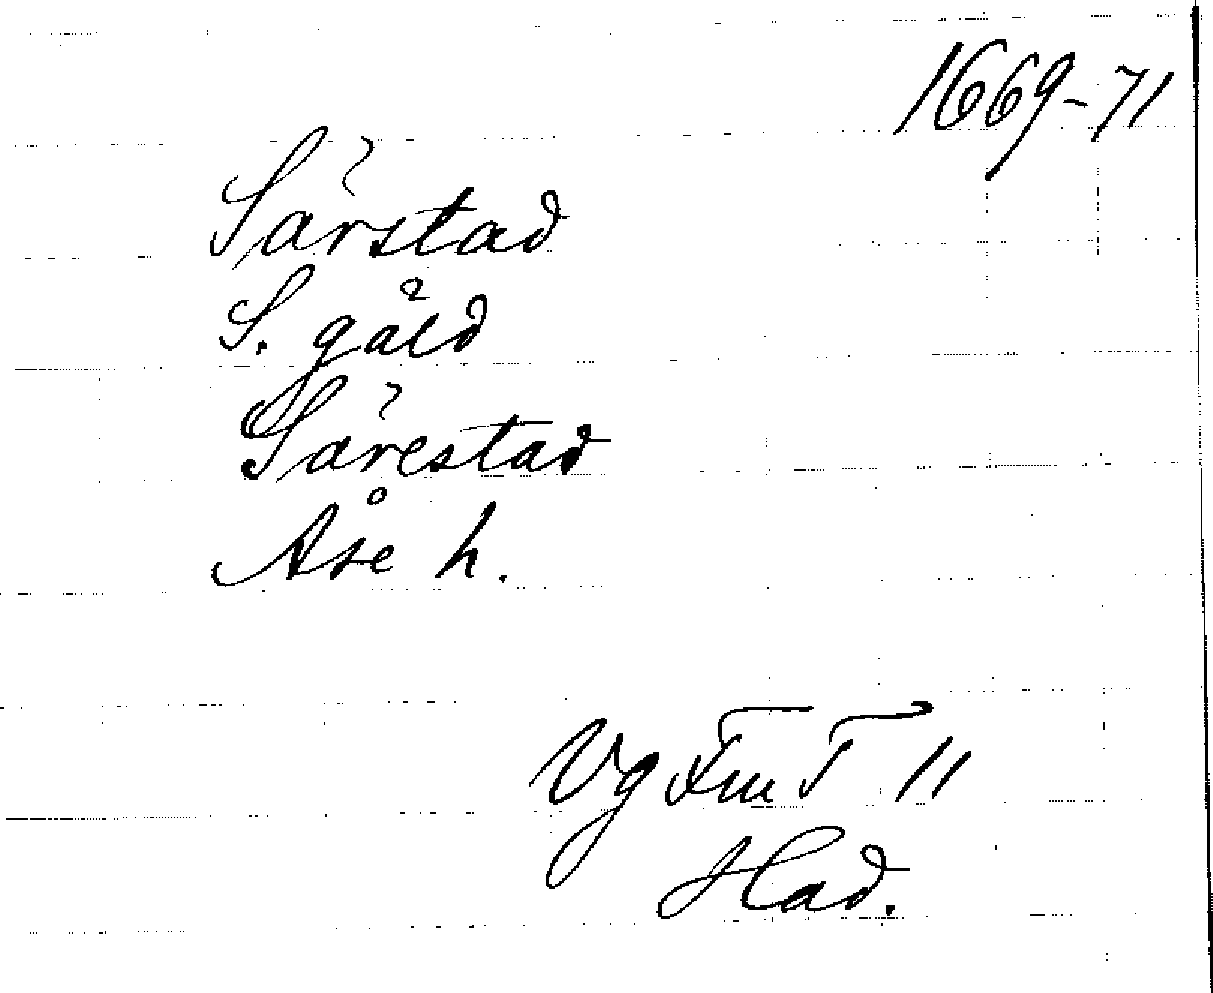 1669-71
Särstad
S. gäld
Särestad
Åse h.
Vg Fm T 11
Had.